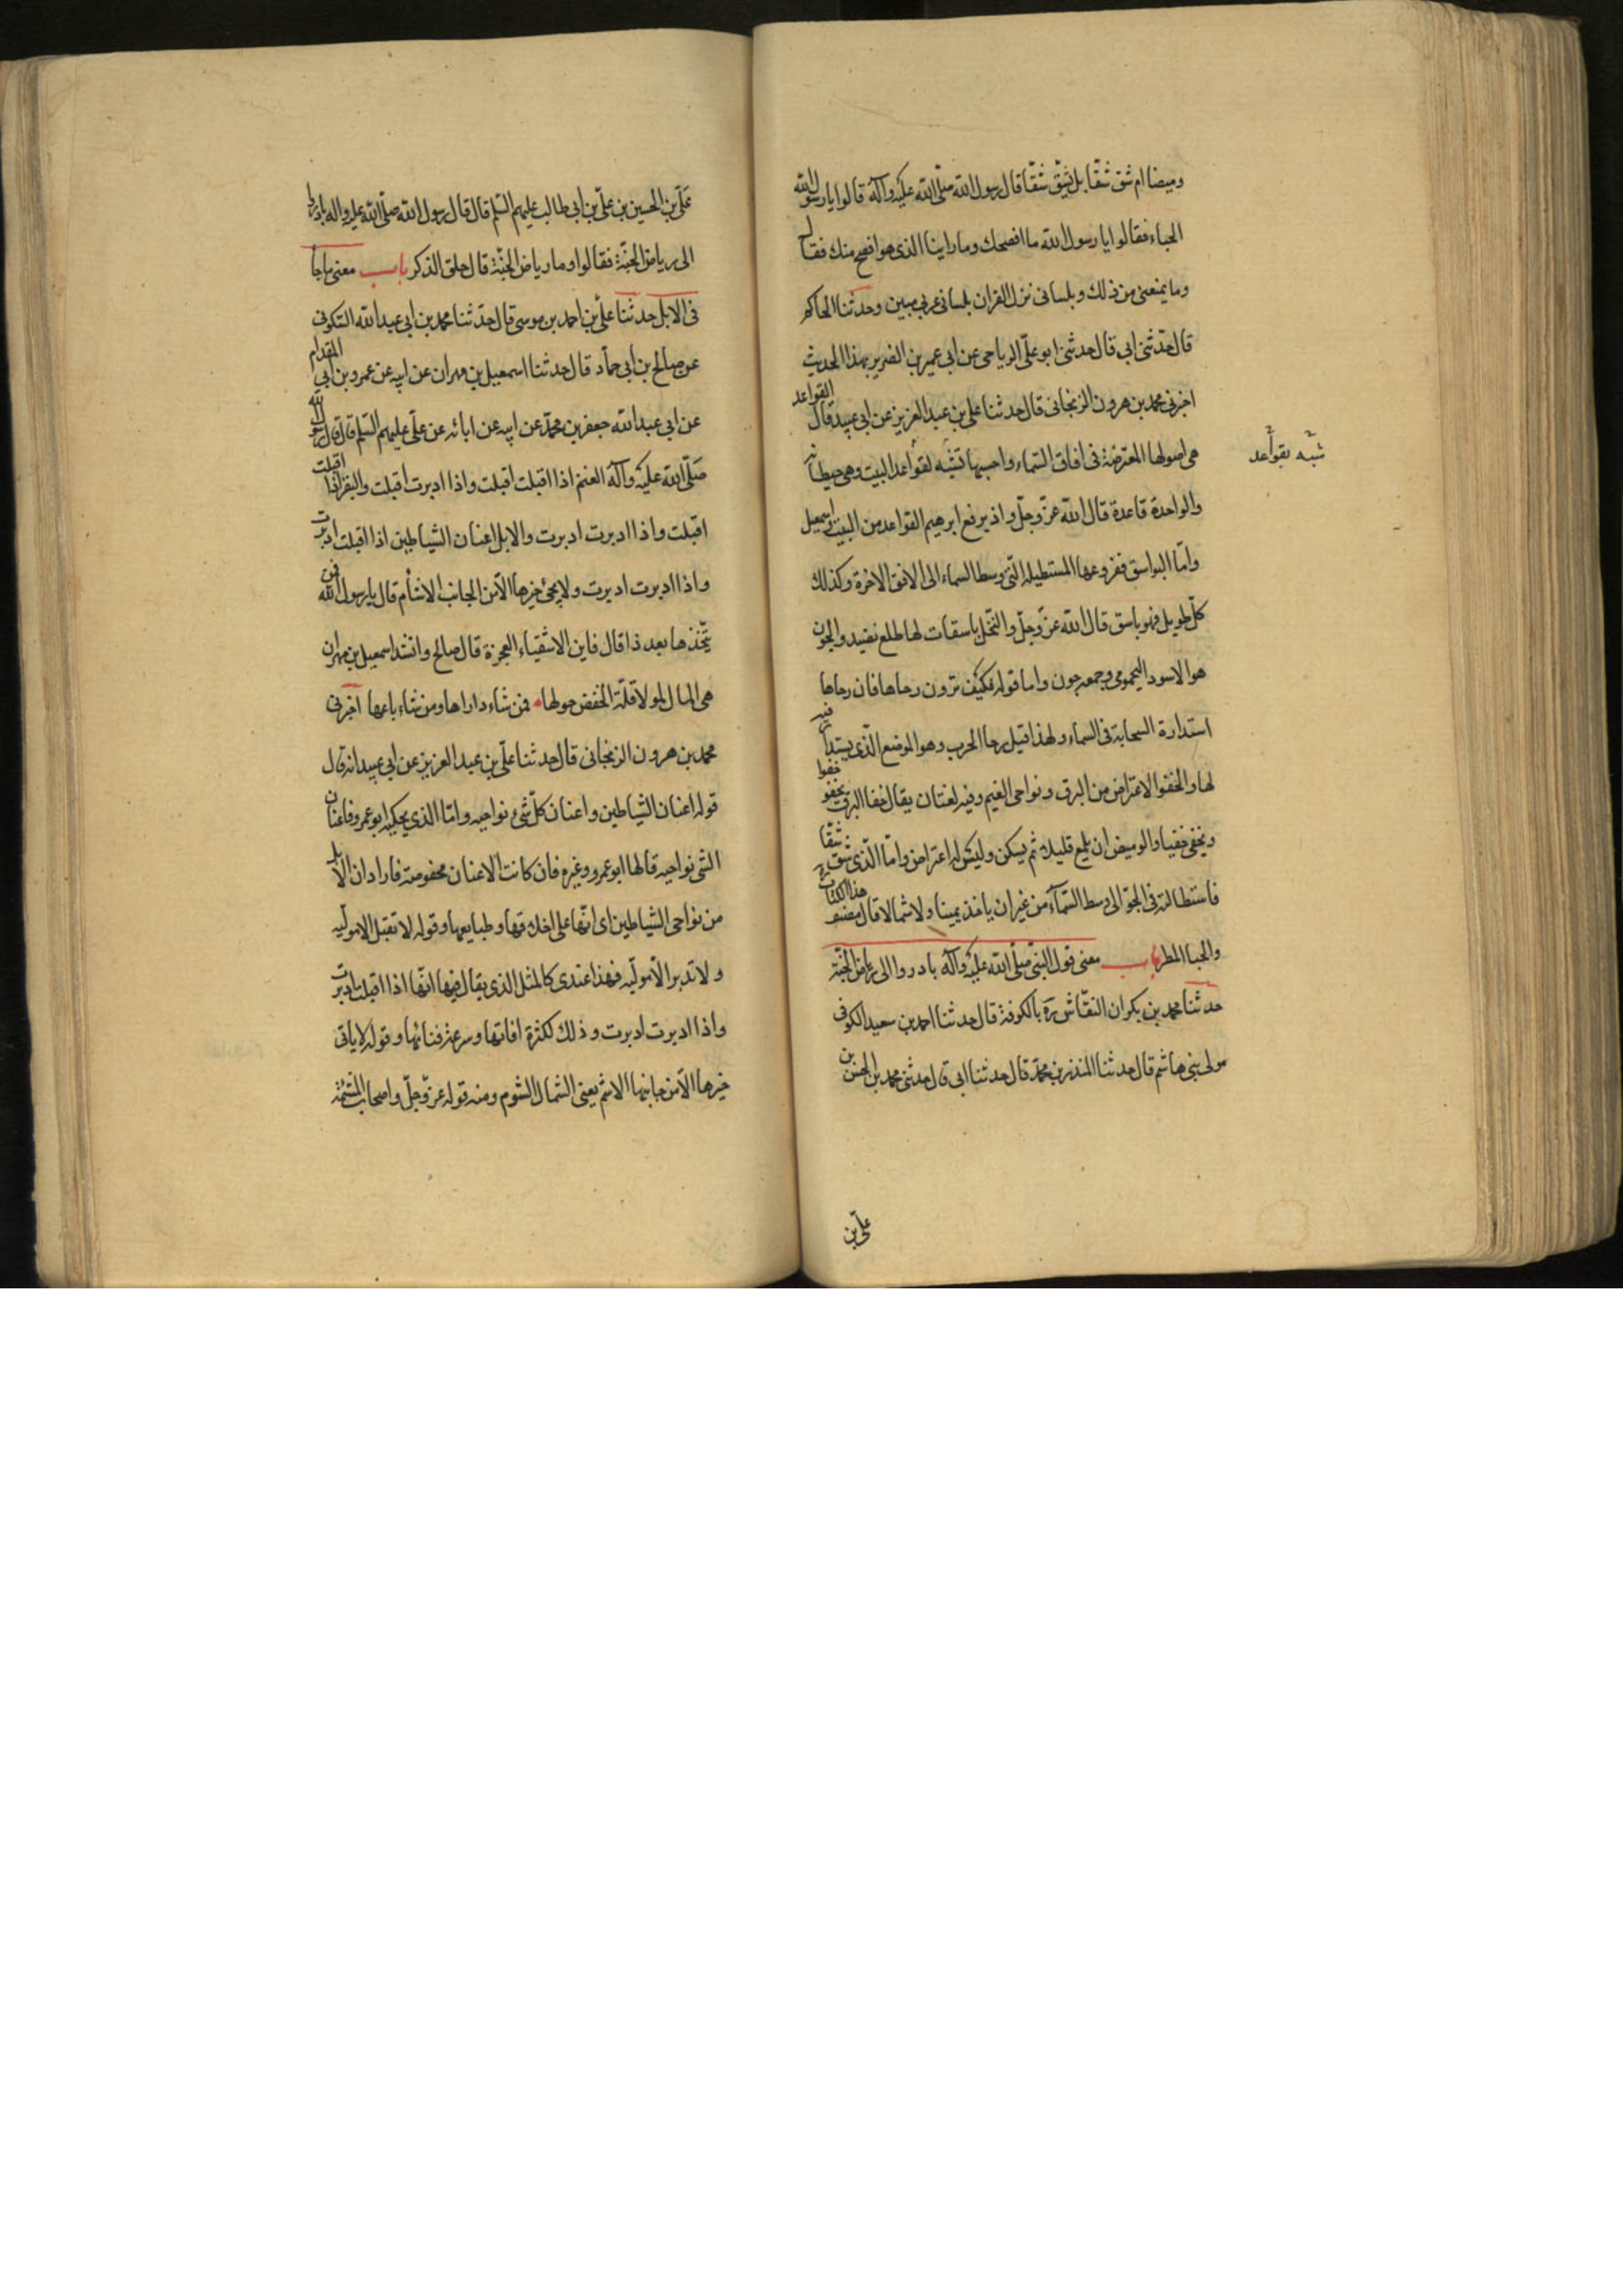 وميضا ام شق شقّا بل يشقّ شقّا قال رسول الله صلّى الله عليه وآله قالوا يا رسول الله
الحياء فقالوا يا رسول الله ما افصحك وما راينا الذى هو افصح منك فقال
وما يمنعنى من ذلك وبلسانى نزل القران بلسان عربى مبين وحدثنا الحاكم
قال حدّثنى ابى قال حدثنى ابو علىّ الرياحى عن ابى عمير بن الضرير بهذا الحديث
اخبرنى محمد بن هرون الزنجانى قال حدثنا على بن عبد العزيز عن ابى عبيد قال القواعد
هى اصولها المعترضة فى افاق السّماء واحسبها تشبّه لقواعد البيت وهى حيطانه
شبّه بقواعد
والواحدة قاعدة قال الله عزّ وجلّ واذ يرفع ابرهيم القواعد من البيت واسمعيل
وامّا البواسق ففروعها المستطيلة الّتى وسط السماء الى الافق الاخرة وكذلك
كلّ طويل فهو باسق قال الله عزّ وجلّ والنّخل باسقات لها طلع نضيد والجون
هو الاسود اليحمومى وجمعه جون واما قوله فكيف ترون رحاها فان رحاها
استدارة السحابة فى السماء ولهذا قيل رحا الحرب وهو الموضع الّذى يستدار فيه
لها والخفوا الاعتراض من البرق ونواحى الغيم وفيه لغتان يقال خفا البرق يخفو خفوا
ويخفى خفيا والوميض ان يلمع قليلا ثم يسكن وليس له اعتراض وامّا الّذى شق شقّا
فاستطالته فى الجوّ الى وسط السّمآء من غير ان ياخذ يمينا ولا شمالا قال مصنف هذا الكتاب
والحيا المطر باب معنى قول النّبى صلّى الله عليه وآله بادروا الى رياض الجنّة
حدثنا محمد بن بكران النقّاش ره بالكوفة قال حدثنا احمد بن سعيد الكوفى
مولى بنى هاشم قال حدثنا المنذر بن محمّد قال حدثنا ابى قال حدثنى محمد بن الحسن بن
على بن
علّى بن الحسين بن علىّ بن ابى طالب عليهم السّلم قال قال رسول الله صلّى الله عليه واله بادروا
الى رياض الجنّة فقالوا وما رياض الجنّة قال حلق الذكر باب معنى ما جاء
فى الابل حدثنا علىّ بن احمد بن موسى قال حدّثنا محمد بن ابى عبد الله السّكونى
عن صالح بن ابى حمّاد قال حدثنا اسمعيل بن مهران عن ابيه عن عمرو بن ابى المقدام
عن ابى عبد الله جعفر بن محمّد عن ابيه عن ابائه عن علىّ عليهم السّلم قال قال رسول الله
صلّى الله عليه وآله الغنم اذا اقبلت اقبلت واذا ادبرت اقبلت والبقر اذا اقبلت
اقبلت واذا ادبرت ادبرت والابل اعنان الشّياطين اذا اقبلت ادبرت
واذا ادبرت ادبرت ولا يجئ خيرها الّا من الجانب الاشأم قال يا رسول الله فمن
يتّخذها بعد ذا قال فاين الاشقياء الفجرة قال صالح وانشد اسمعيل بن مهران
هى المال لولا قلّة الخفض حولها فمن شاء داراها ومن شاء باعها اخبرنى
محمد بن هرون الزنجانى قال حدثنا علّى بن عبد العزيز عن ابى عبيد انه قال
قوله اعنان الشّياطين واعنان كلّ شئ نواحيه وامّا الذى يحكيه ابو عمرو فاعنان
الشى نواحيه قالها ابو عمرو وغيره فان كانت الاعنان محفوصة فاراد ان الابل
من نواحى الشياطين اى انّها على اخلاقها وطبايعها وقوله لا تقبل الا مولّيه
ولا تدبر الّا مولّيه فهذا عندى كالمثل الذى يقال فيها انّها اذا اقبلت ادبرت
واذا ادبرت ادبرت وذلك لكثرة افاتها وسرعة فنائها وقوله لا ياتى
خيرها الّا من جانبها الاشئم يعنى الشمال الشوم ومنه قوله عزّ وجلّ واصحاب المشئمة